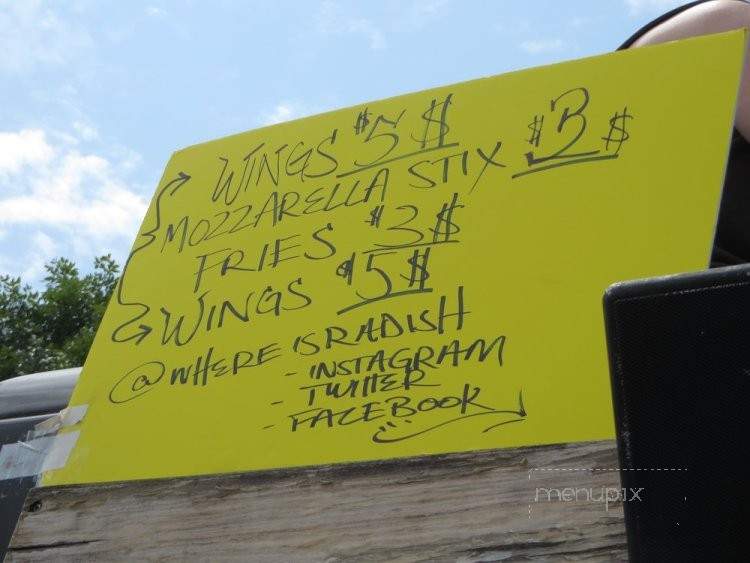 WINGS $5$
MOZZARELLA STIX $3$
FRIES $3$
WINGS $5$
@WHERE ISRADISH
- INSTAGRAM
- TWITTER
- FACEBOOK
menupix